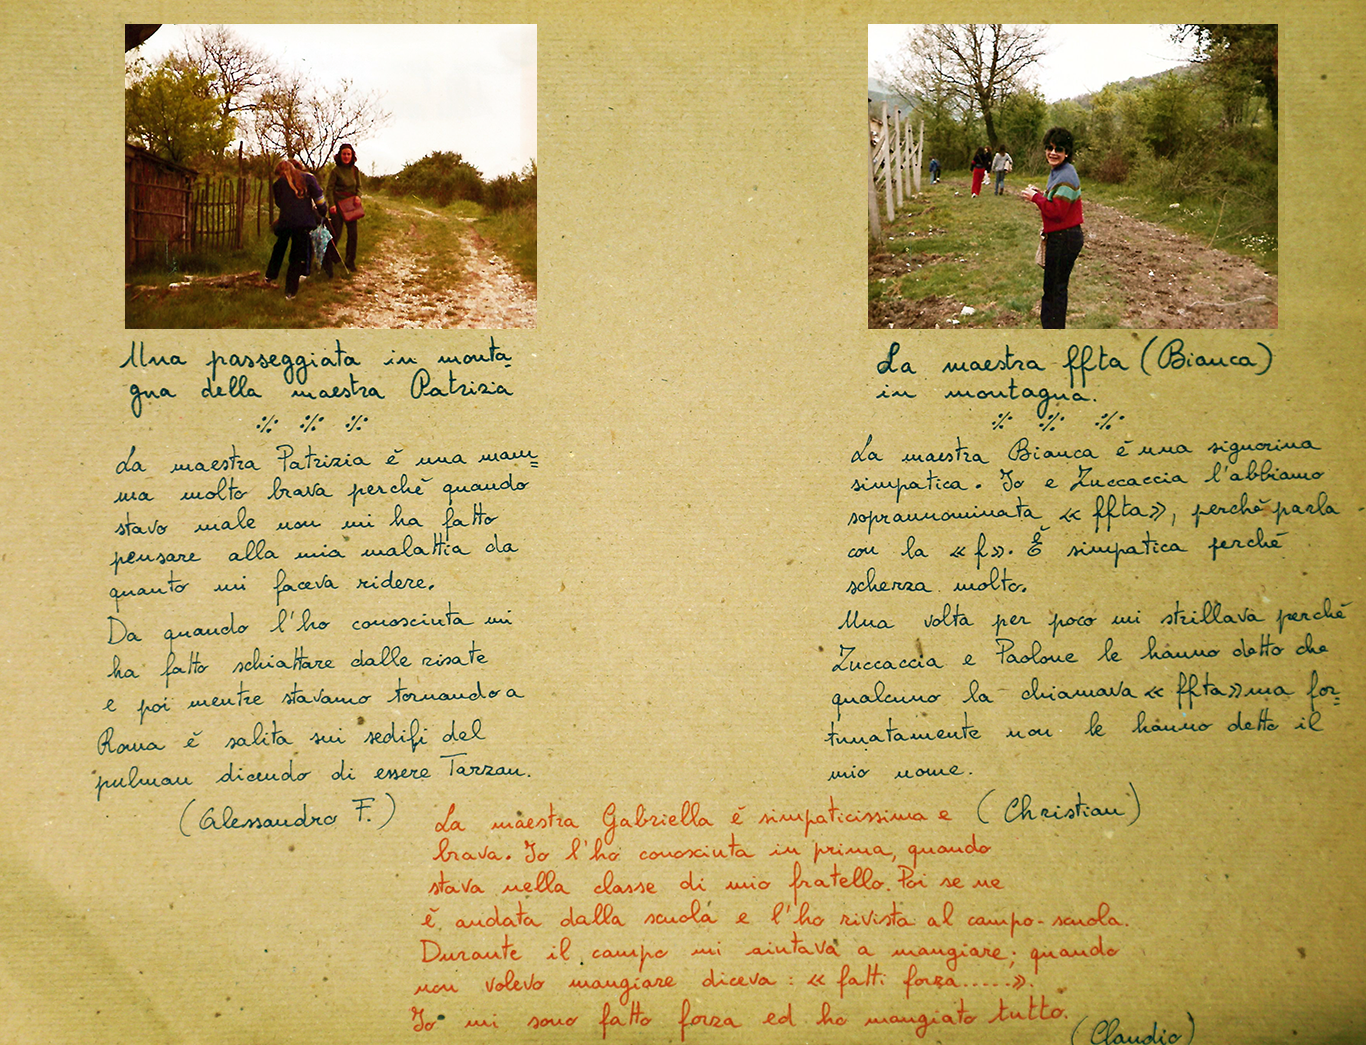 Una passeggiata in monta
gna della maestra Patrizia
La maestra Patrizia è una mam=
ma molto brava perché quando
stavo male non mi ha fatto
pensare alla mia malattia da
quanto mi faceva ridere.
Da quando l'ho conosciuta mi
ha fatto schiattare dalle risate
e poi mentre stavamo tornando a
Roma è salita sui sedifi del
pulman dicendo di essere Tarzan.
(Alessandro F.)
La maestra ffta (Bianca)
in montagna.
La maestra Bianca è una signorina
simpatica. Io e Zuccaccia l'abbiamo
soprannominata «ffta», perché parla
con la «f». È simpatica perché
scherza molto.
Una volta per poco mi strillava perché
Zuccaccia e Paolone le hanno detto che
qualcuno la chiamava «ffta» ma for=
tunatamente non le hanno detto il
mio nome.
(Christian)
La maestra Gabriella è simpaticissima e
brava. Io l'ho conosciuta in prima, quando
stava nella classe di mio fratello. Poi se ne
è andata dalla scuola e l'ho rivista al campo-scuola.
Durante il campo mi aiutava a mangiare; quando
non volevo mangiare diceva: «fatti forza.....».
Io mi sono fatto forza ed ho mangiato tutto.
(Claudio)